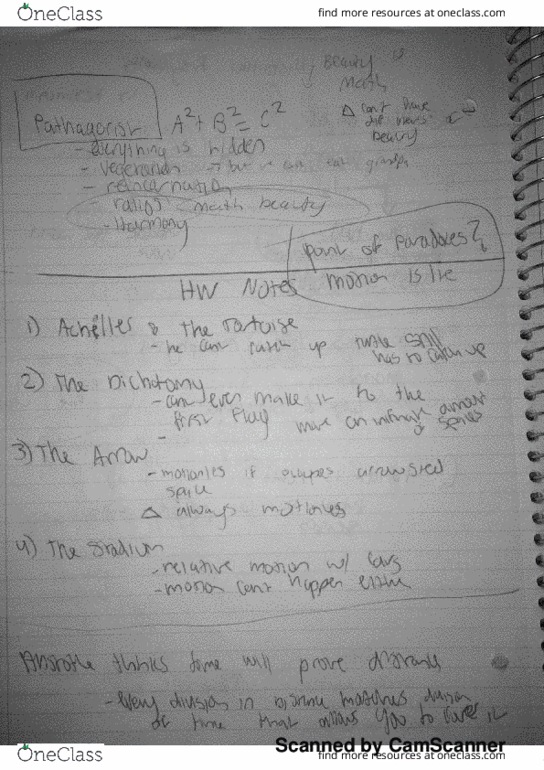 OneClass
find more resources at oneclass.com
Beauty is
math
Pathagorist A²+B²=C²
∴ can't have
beauty
- everything is hidden
- vegetarian →
- reincarnation
ratios math beauty
- Harmony
point of Paradoxes?
motion is lie
HW Notes
1) Achilles & the tortoise
- he can catch up turtle still
has to catch up
2) The Dichotomy
- can even make it to the
first flag move an infinite amount
of spaces
3) The Arrow
- motionles if
space
∴ always motionles
4) The Stadium
- relative motion w/ cars
- motion can't happen either
thinks time will prove
- Every division in matches division
of time that allows you to
Scanned by CamScanner
OneClass
find more resources at oneclass.com